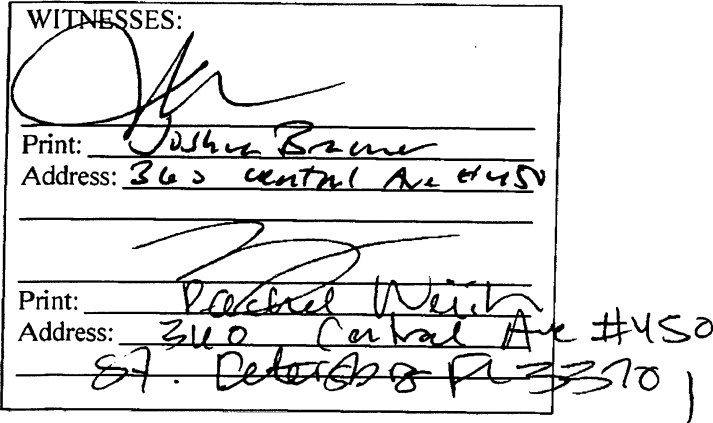 WITNESSES:
Print: Joshua
Address: 360 Central Ave #450
Print: Rachel
Address: 360 Central Ave #450
St. Petersburg FL 33701